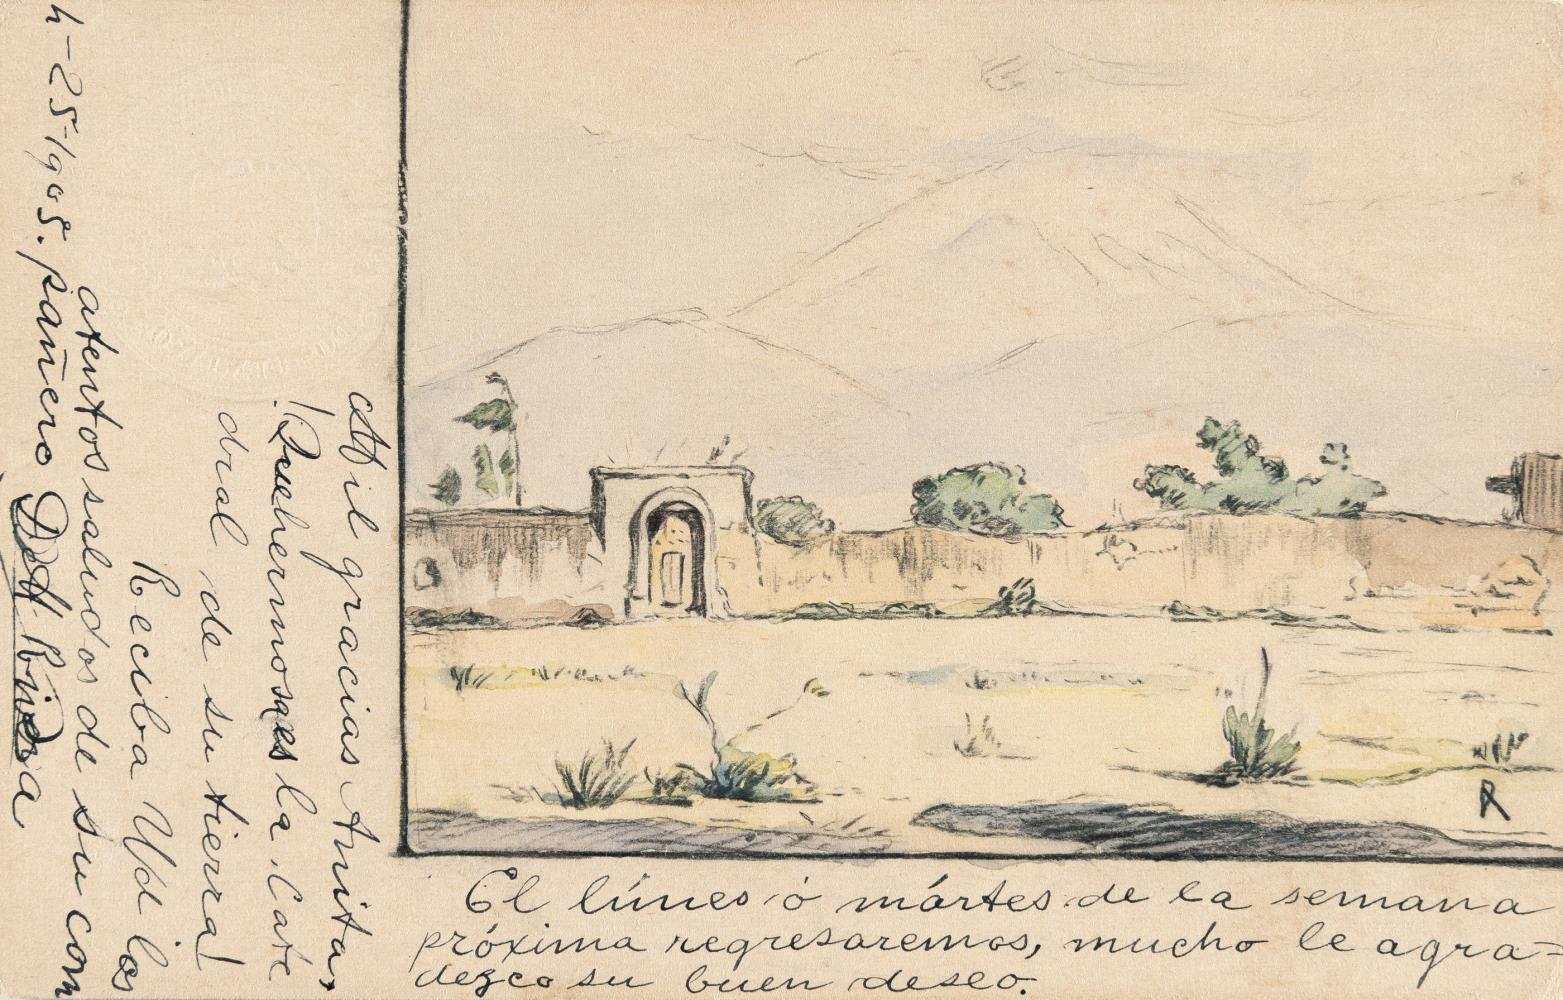 Mil gracias Anita,
¡Que hermosa es la Cate
dral de su tierra!
Reciba Ud los
atentos saludos de su com
4-25-1905. pañero DM Rivera
El lúnes ó mártes de la semana
próxima regresaremos, mucho le agra=
dezco su buen deseo.
R